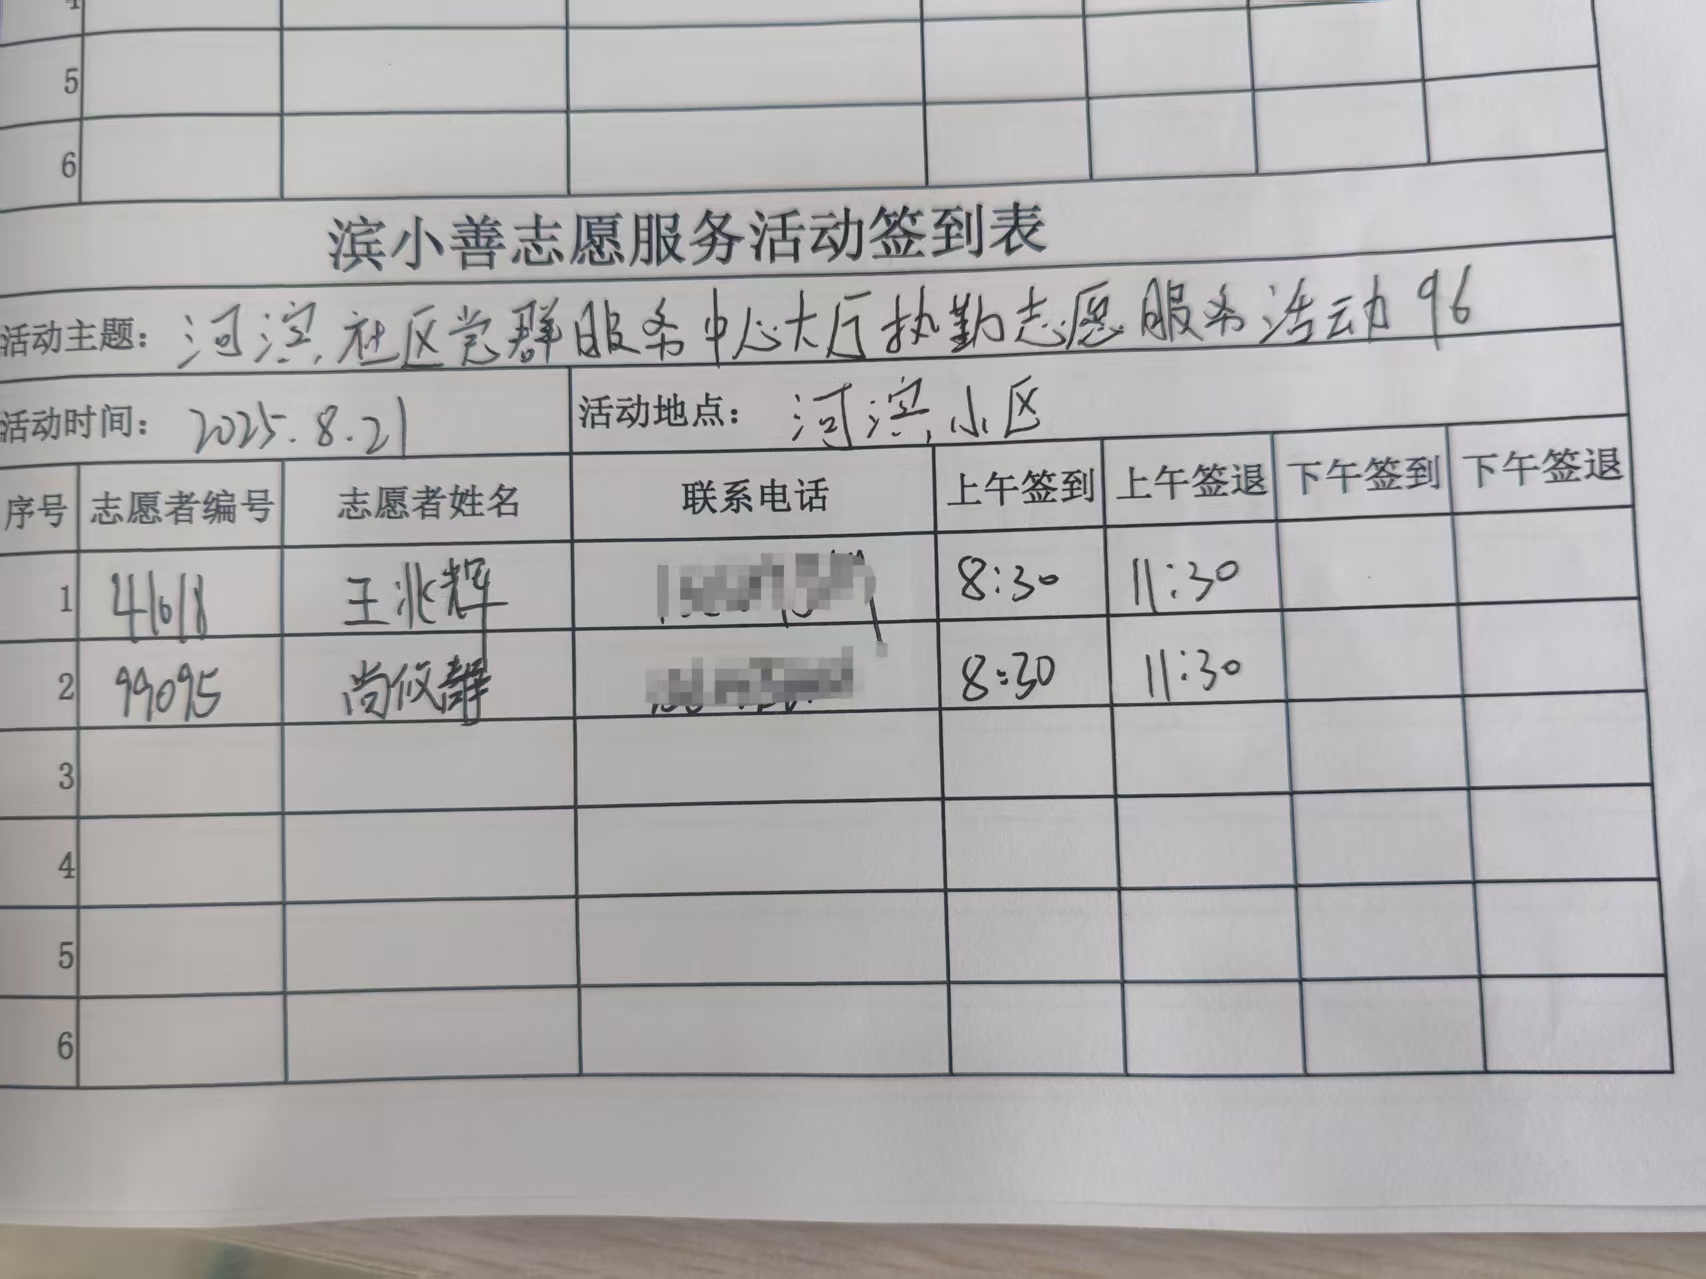 5
6
滨小善志愿服务活动签到表
活动主题： 河滨社区党群服务中心大厅执勤志愿服务活动96
活动时间： 2025.8.21 活动地点： 河滨小区
序号 志愿者编号 志愿者姓名 联系电话 上午签到 上午签退 下午签到 下午签退
1 41618 王兆辉 8:30 11:30
2 99095 尚攸静 8:30 11:30
3
4
5
6